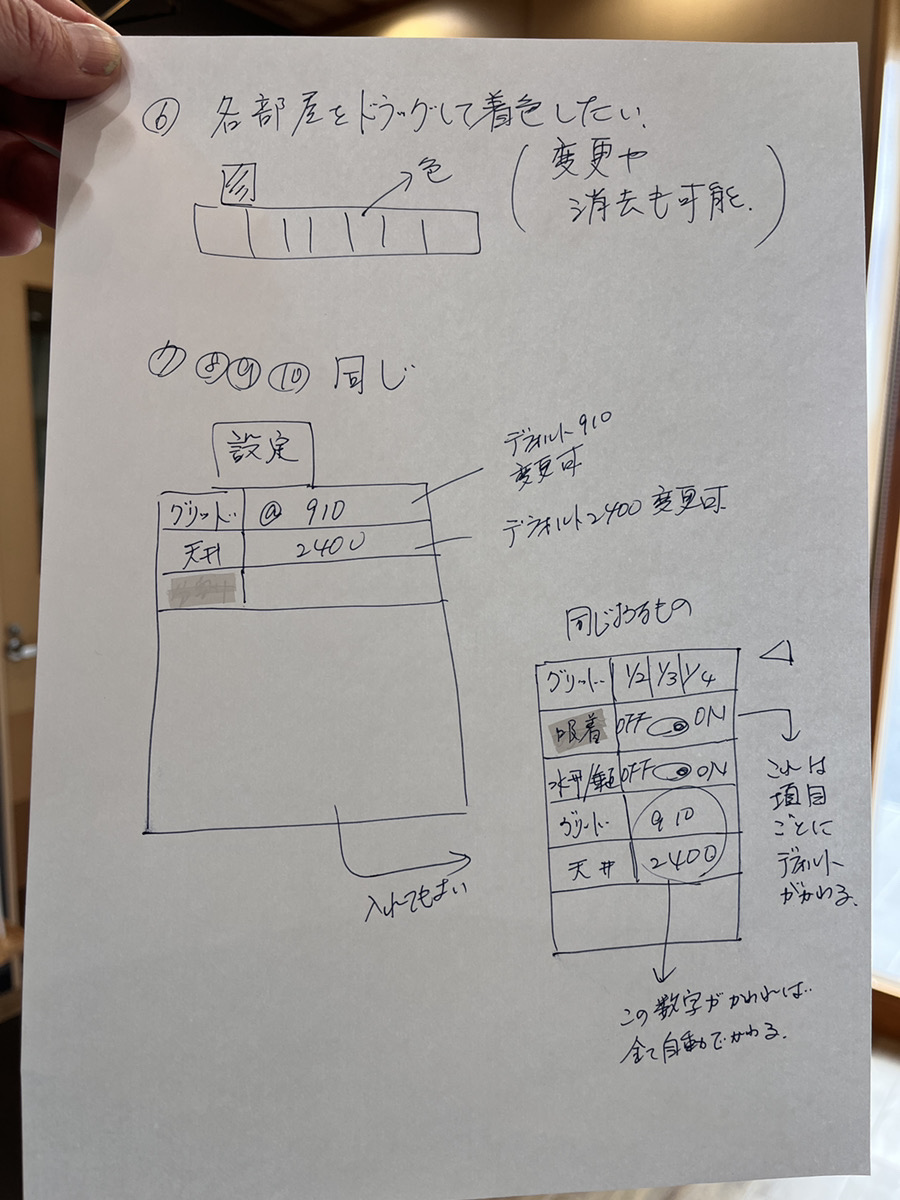 ⑥ 各部屋をドラッグして着色したい。
(変更や
消去も可能。)
色
⑦⑧⑨⑩ 同じ
設定
グリッド @ 910
天井 2400
デフォルト910
変更可
デフォルト2400 変更可
入れてもよい
グリッド 1/2 1/3 1/4
吸着 OFF ON
水平/垂直 OFF ON
グリッド 910
天井 2400
これは
項目
ごとに
デフォルト
がかわる。
この数字がかわれば
全て自動でかわる。